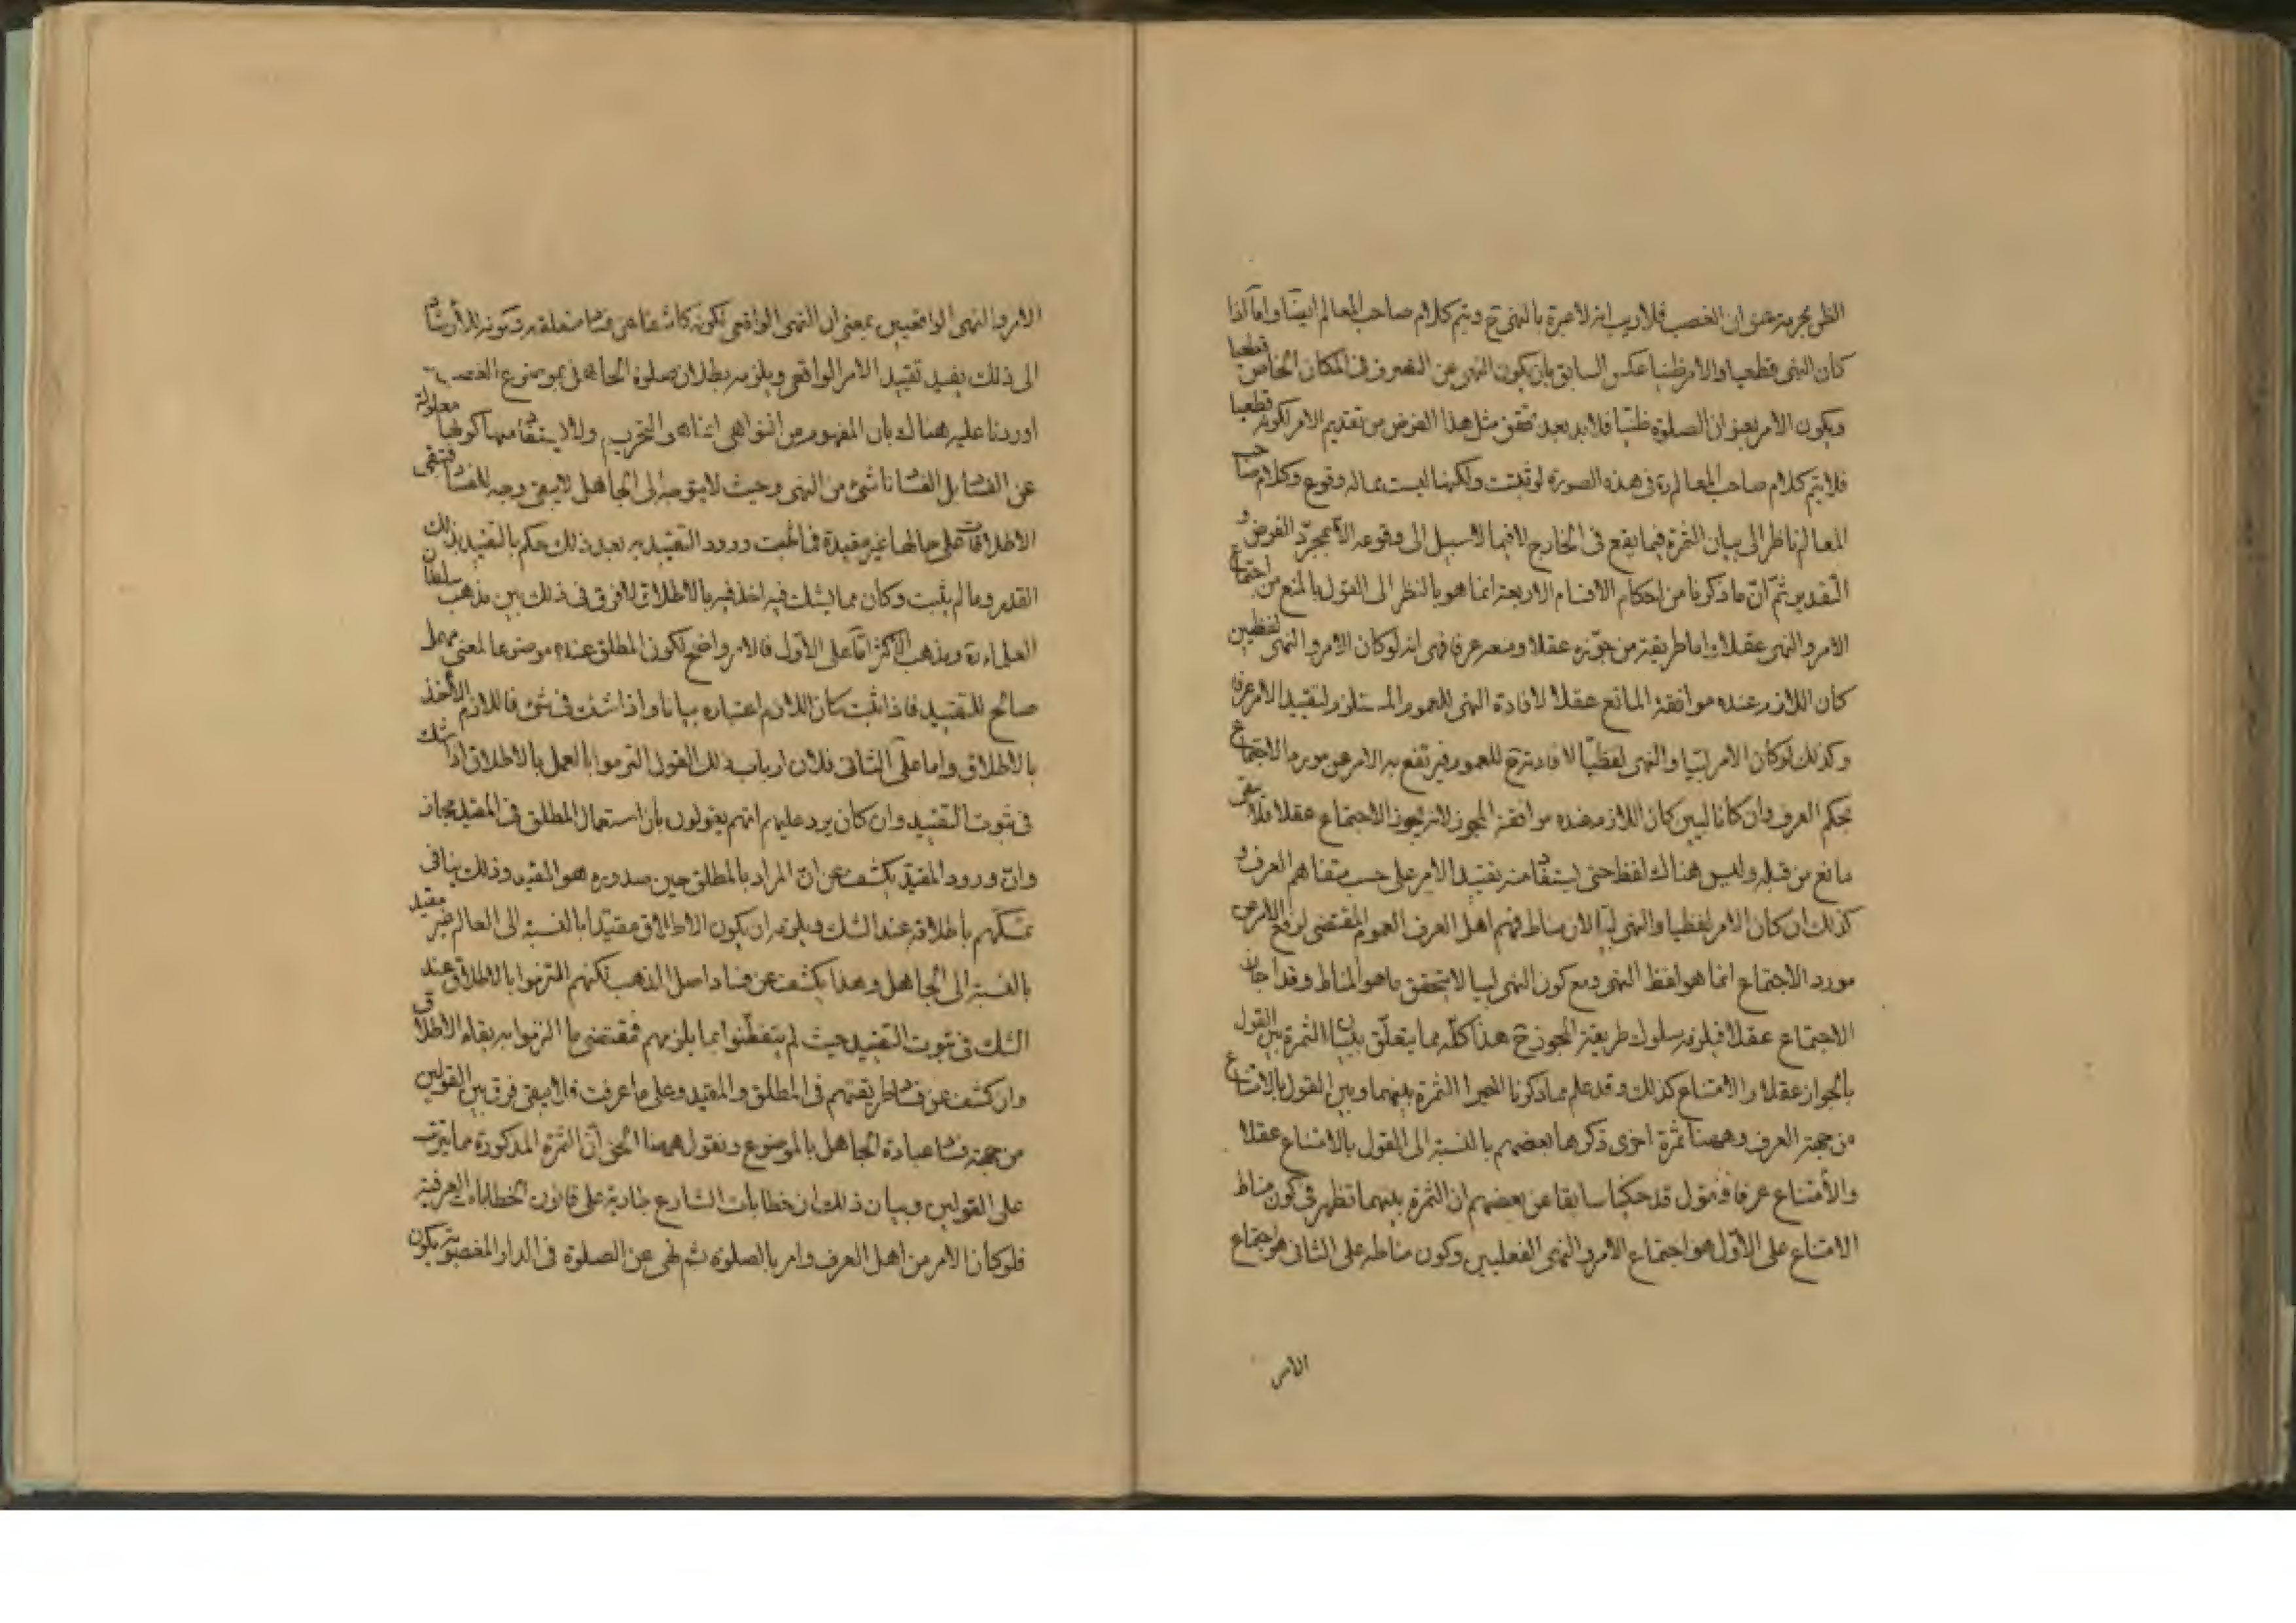 الظن بحرمة عنوان الغصب فلا ريب انه لا عبرة بالنهى ح ويتم كلام صاحب المعالم ايضا واما اذا
كان النهى قطعيا والامر ظنيا عكس السابق بان يكون النهى عن التصرف فى المكان الخاص قطعيا
ويكون الامر بعنوان الصلوة ظنيا فلا بد بعد تحقق مثل هذا الفرض من تقديم الامر لكونه قطعيا
فلا يتم كلام صاحب المعالم ره فى هذه الصورة لو ثبتت ولكنها ليست مما له وقوع وكلام صاحب
المعالم ناظر الى بيان الثمرة فيما يقع فى الخارج لا فيما لا سبيل الى وقوعه الا بمجرد الفرض و
التقدير ثم ان ما ذكرنا من احكام الاقسام الاربعة انما هو بالنظر الى القول بالمنع من اجتماع
الامر والنهى عقلا واما طريقة من جوزه عقلا ومنعه عرفا فهى انه لو كان الامر والنهى لفظيين
كان اللازم عنده موافقة المانع عقلا لافادة النهى للعموم المستلزم لتقييد الامر عرفا
وكذلك لو كان الامر لبيا والنهى لفظيا لافادته ح للعموم فيرتفع به الامر عن مورد الاجتماع
بحكم العرف وان كانا لبيين كان اللازم عنده موافقة المجوز لانه يجوز الاجتماع عقلا فلا يبقى
مانع من قبله وليس هناك لفظ حتى يستفاد منه تقييد الامر على حسب متفاهم العرف و
كذلك ان كان الامر لفظيا والنهى لبيا لان مناط فهم اهل العرف العموم المقتضى لرفع الامر عن
مورد الاجتماع انما هو لفظ النهى ومع كون النهى لبيا لا يتحقق ما هو المناط وقد اجاز
الاجتماع عقلا فيلزمه سلوك طريقة المجوز ح هذا كله مما يتعلق ببيان الثمرة بين القول
بالجواز عقلا والامتناع كذلك وقد علم مما ذكرنا اخيرا الثمرة بينهما وبين القول بالامتناع
من جهة العرف وههنا ثمرة اخرى ذكرها بعضهم بالنسبة الى القول بالامتناع عقلا
والامتناع عرفا فنقول قد حكينا سابقا عن بعضهم ان الثمرة بينهما تظهر فى كون مناط
الامتناع على الاول هو اجتماع الامر والنهى الفعليين وكون مناطه على الثانى هو اجتماع
الامر
الامر والنهى الواقعيين بمعنى ان النهى الواقعى لكونه كاشفا عن فساد متعلقه
الى ذلك يفيد تقييد الامر الواقعى ويلزمه بطلان صلوة الجاهل بموضوع الغصب
اوردنا عليه هناك بان المفهوم من النواهى انما هو التحريم ولا يستفاد منها كونها معلولة
عن الفساد بل الفساد ناشئ من النهى وحيث لا يتوجه الى الجاهل لا يبقى وجه للفساد فتبقى
الاطلاقات على حالها غير مقيدة فما ثبت ورود التقييد به بعد ذلك حكم بالتقييد بذلك
القدر وما لم يثبت وكان مما يشك فيه اخذ فيه بالاطلاق لا فرق فى ذلك بين مذهب سلطان
العلماء ره ومذهب الاكثر اما على الاول فالامر واضح لكون المطلق عنده موضوعا لمعنى مهمل
صالح للتقييد فاذا ثبت كان اللازم اعتباره بيانا واذا شك فى شئ فاللازم الاخذ
بالاطلاق واما على الثانى فلان ارباب ذلك القول التزموا بالعمل بالاطلاق اذا شك
فى ثبوت التقييد وان كان يرد عليهم انهم يقولون بان استعمال المطلق فى المقيد مجاز
وان ورود المقيد يكشف عن ان المراد بالمطلق حين صدوره هو المقيد وذلك ينافى
تمسكهم باطلاقه عند الشك ويلزمه ان يكون الاطلاق مقيدا بالنسبة الى العالم غير مقيد
بالنسبة الى الجاهل وهذا يكشف عن فساد اصل المذهب لكنهم التزموا بالاطلاق عند
الشك فى ثبوت التقييد حيث لم يتفطنوا بما يلزمهم فمقتضى ما التزموا به بقاء الاطلاق
وان كشف عن فساد طريقتهم فى المطلق والمقيد وعلى ما عرفت فلا يبقى فرق بين القولين
من جهة فساد عبادة الجاهل بالموضوع ونقول ههنا الحق ان الثمرة المذكورة مما يترتب
على القولين وبيان ذلك ان خطابات الشارع جارية على قانون الخطابات العرفية
فلو كان الامر من اهل العرف وامر بالصلوة ثم نهى عن الصلوة فى الدار المغصوبة يكون